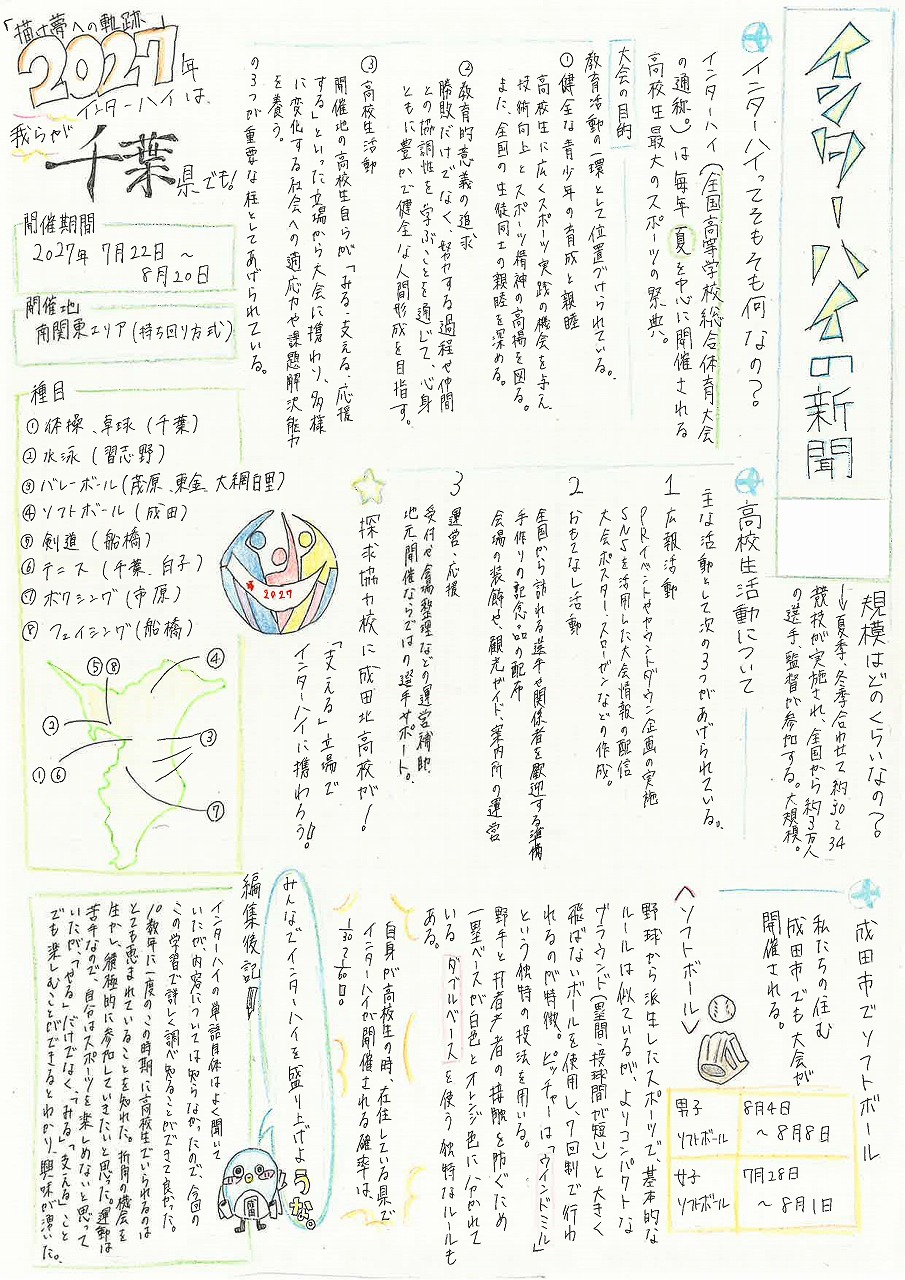 インターハイの新聞
インターハイってそもそも何なの？
インターハイ（全国高等学校総合体育大会
の通称。）は毎年夏を中心に開催される
高校生最大のスポーツの祭典。
大会の目的
教育活動の一環として位置づけられている。
①健全な青少年の育成と親睦
高校生に広くスポーツ実践の機会を与え
技術向上とスポーツ精神の高揚を図る。
また、全国の生徒同士の親睦を深める。
②教育的意義の追求
勝敗だけでなく、努力する過程や仲間
との協調性を学ぶことを通じて、心身
ともに豊かで健全な人間形成を目指す。
③高校生活動
開催地の高校生自らが「みる、支える、応援
する」といった立場から大会に携わり、多様
に変化する社会への適応力や課題解決能力
を養う。
の3つが重要な柱としてあげられている。
「描け夢への軌跡」
2027年
インターハイは、
我らが
千葉県でも！
開催期間
2027年 7月22日 〜
8月20日
開催地
南関東エリア（持ち回り方式）
種目
①体操、卓球（千葉）
②水泳（習志野）
③バレーボール（茂原、東金、大網白里）
④ソフトボール（成田）
⑤剣道（船橋）
⑥テニス（千葉、白子）
⑦ボクシング（市原）
⑧フェイシング（船橋）
⑤⑧
④
②
③
①⑥
⑦
規模はどのくらいなの？
→夏季、冬季合わせて約30〜34
競技が実施され、全国から約3万人
の選手、監督が参加する。大規模。
高校生活動について
主な活動として次の3つがあげられている。
1 広報活動
PRイベントやカウントダウン企画の実施
SNSを活用した大会情報の配信
大会ポスター、スローガンなどの作成。
2 おもてなし活動
全国から訪れる選手や関係者を歓迎する準備
手作りの記念品の配布
会場の装飾や、観光ガイド、案内所の運営
3 運営・応援
受付や会場整理などの運営補助
地元開催ならではの選手サポート。
探求協力校に成田北高校が！
「支える」立場で
インターハイに携わろう！！
2027
成田市でソフトボール
私たちの住む
成田市でも大会が
開催される。
男子
ソフトボール
8月4日
〜8月8日
女子
ソフトボール
7月28日
〜8月1日
＜ソフトボール＞
野球から派生したスポーツで、基本的な
ルールは似ているが、よりコンパクトな
グラウンド（塁間・投球間が短い）と大きく
飛ばないボールを使用し、7回制で行わ
れるのが特徴。ピッチャーは「ウインドミル」
という独特の投法を用いる。
野手と打者走者の接触を防ぐため
一塁ベースが白色とオレンジ色に分かれて
いるダブルベースを使う独特なルールも
ある。
自身が高校生の時、在住している県で
インターハイが開催される確率は、
1/30〜1/60。
みんなでインターハイを盛り上げような。
編集後記
インターハイの単語自体はよく聞いて
いたが、内容については知らなかったので、今回の
この学習で詳しく調べ知ることができて良かった。
10数年に一度のこの時期に高校生でいられるのは
とても恵まれていることを知れた。折角の機会を
生かし、積極的に参加していきたいと思った。運動は
苦手なので、自分はスポーツを楽しめないと思って
いたが、「やる」だけでなく、「みる」「支える」こと
でも楽しむことができるとわかり興味が湧いた。